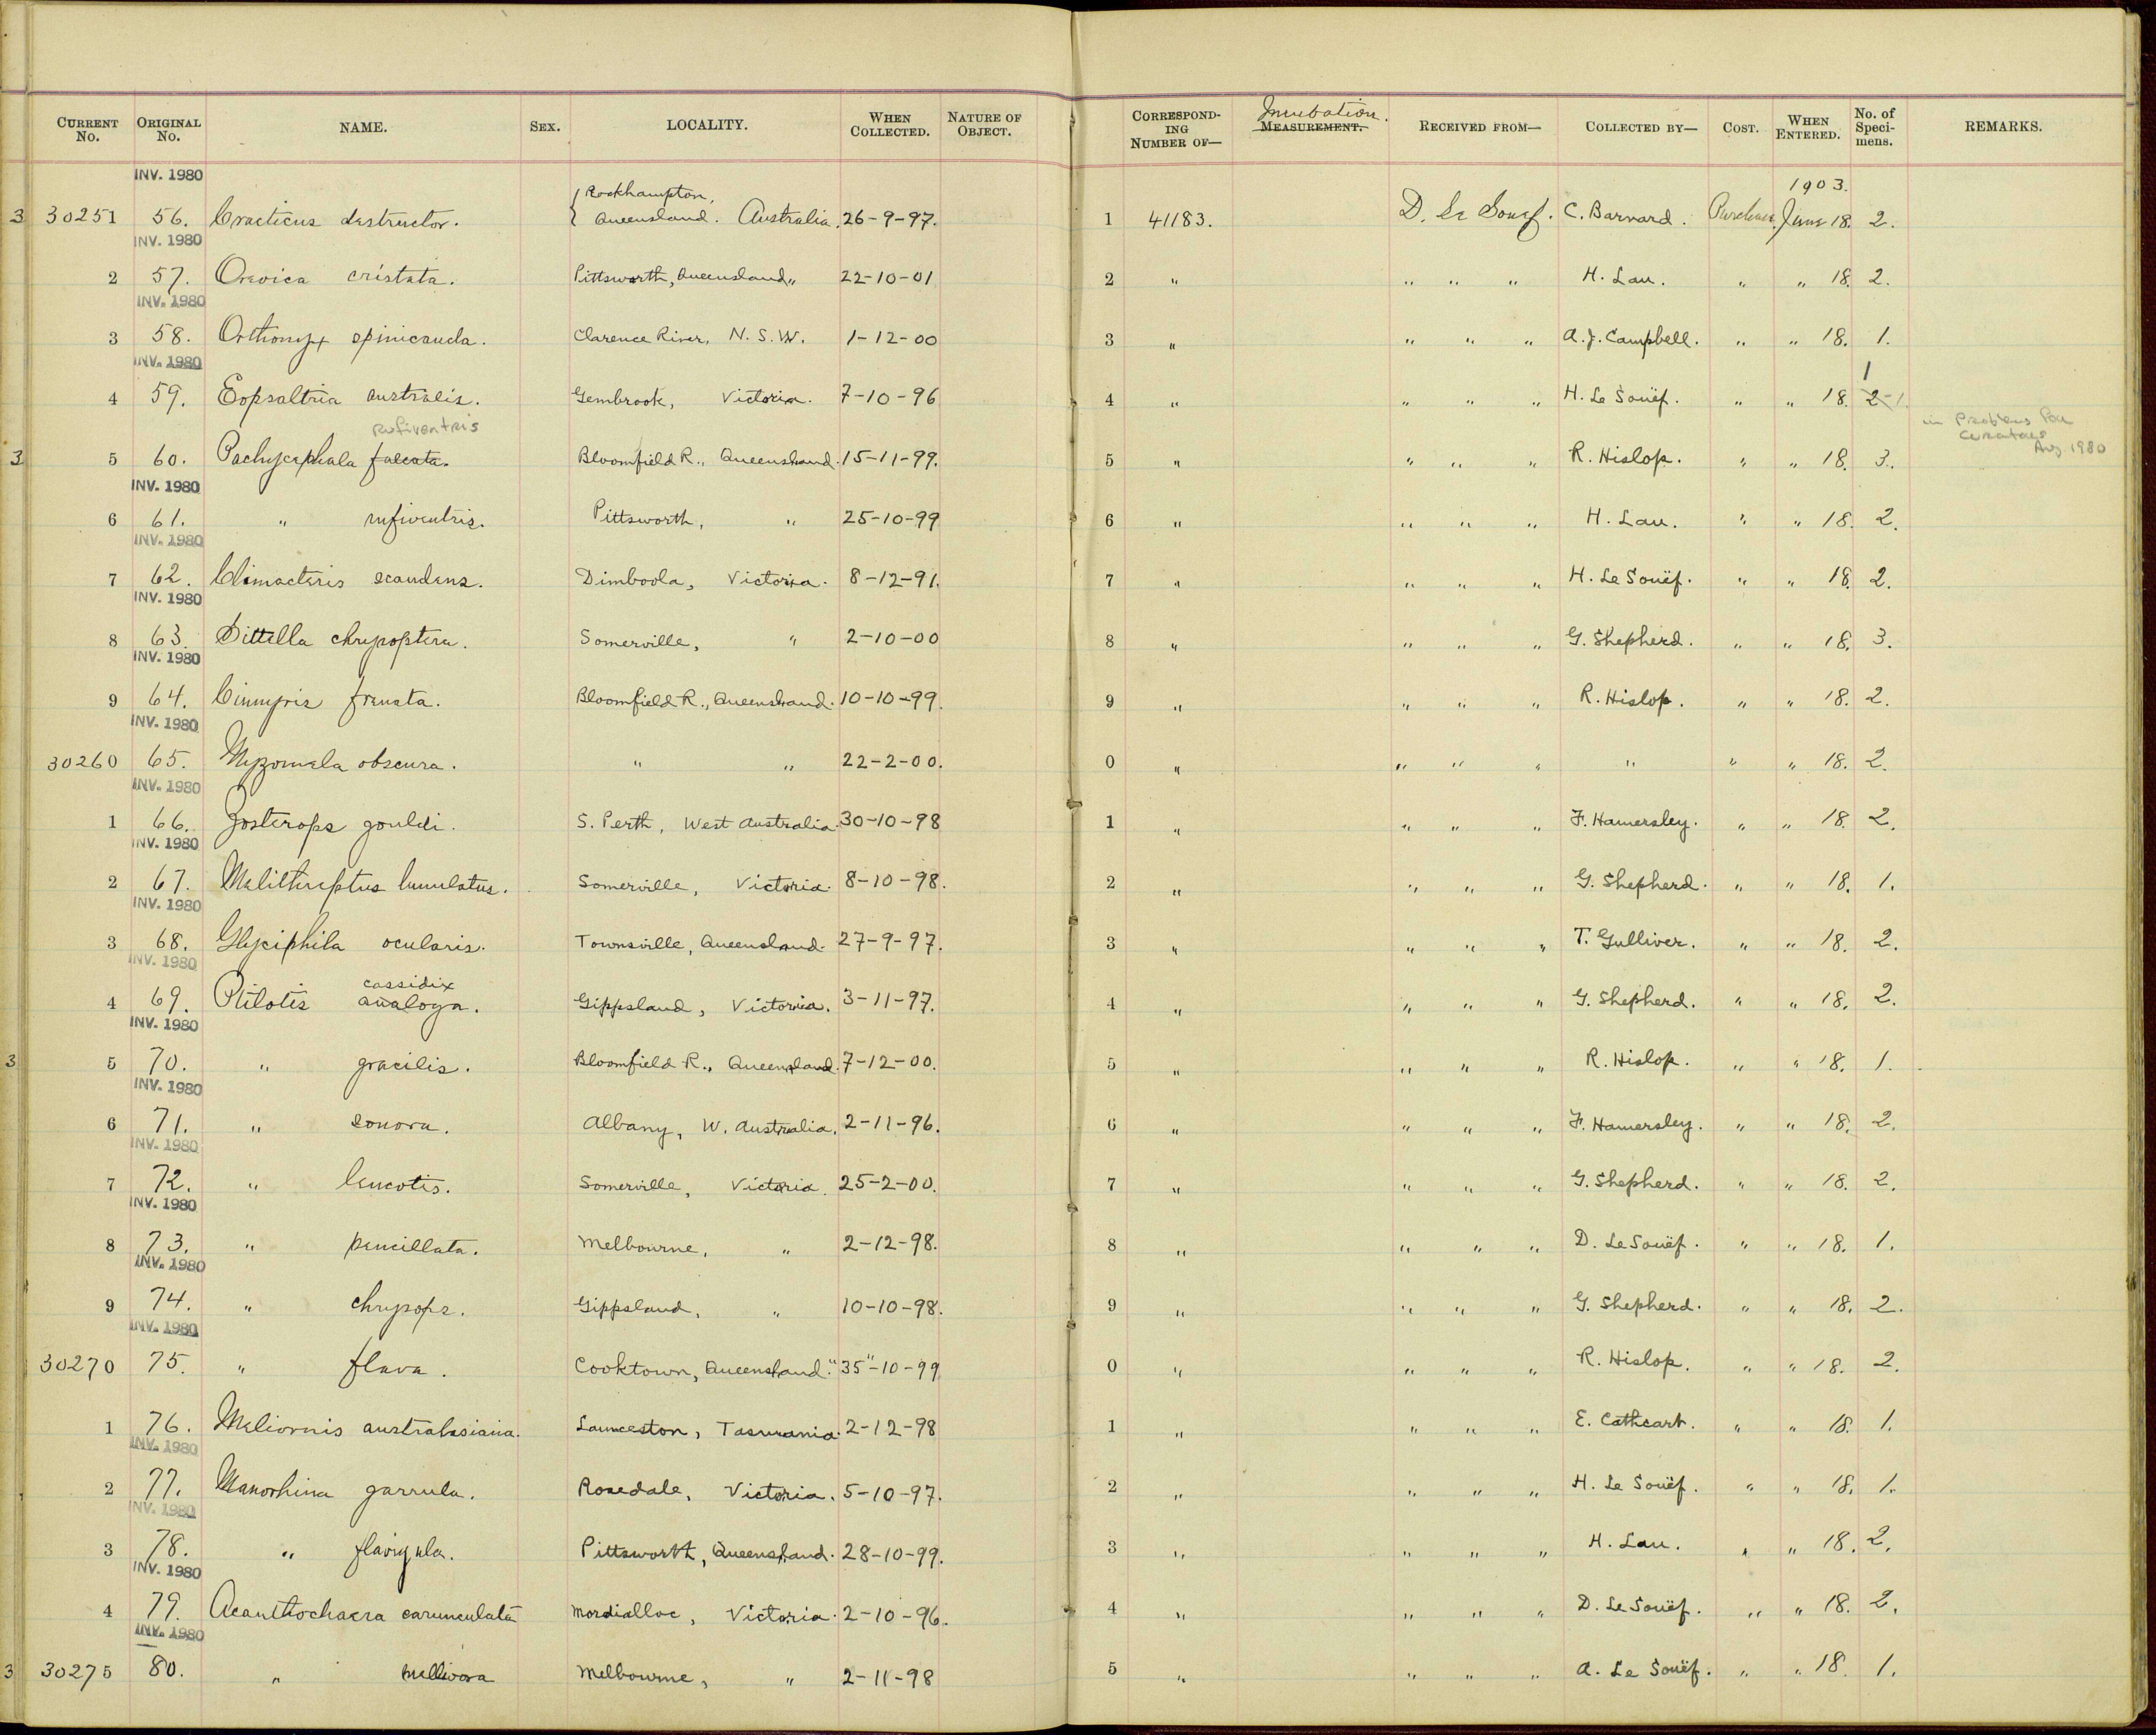 CURRENT No. ORIGINAL No. NAME. SEX. LOCALITY. WHEN COLLECTED. NATURE OF OBJECT. CORRESPONDING NUMBER OF— Incubation. MEASUREMENT. RECEIVED FROM— COLLECTED BY— COST. WHEN ENTERED. No. of Specimens. REMARKS.
INV. 1980 Rockhampton, 1903.
3 30251 56. Cracticus destructor. Queensland. Australia. 26-9-97. 1 41183. D. Le Souef. C. Barnard. Purchase. June 18. 2.
INV. 1980
2 57. Oreoica cristata. Pittsworth, Queensland „ 22-10-01 2 „ „ „ „ H. Lau. „ „ 18. 2.
INV. 1980
3 58. Orthonyx spinicauda. Clarence River, N. S. W. 1-12-00 3 „ „ „ „ A. J. Campbell. „ „ 18. 1.
INV. 1980 1
4 59. Eopsaltria australis. Gembrook, Victoria. 7-10-96 4 „ „ „ „ H. Le Souëf. „ „ 18. 2-1.
rufiventris in Problems for Curators Aug 1980
3 5 60. Pachycephala falcata. Bloomfield R., Queensland. 15-11-99. 5 „ „ „ „ R. Hislop. „ „ 18. 3.
INV. 1980
6 61. „ rufiventris. Pittsworth, „ 25-10-99 6 „ „ „ „ H. Lau. „ „ 18. 2.
INV. 1980
7 62. Climacteris scandens. Dimboola, Victoria. 8-12-91. 7 „ „ „ „ H. Le Souëf. „ „ 18. 2.
INV. 1980
8 63. Sittella chrysoptera. Somerville, „ 2-10-00 8 „ „ „ „ G. Shepherd. „ „ 18. 3.
INV. 1980
9 64. Cinnyris frenata. Bloomfield R., Queensland. 10-10-99. 9 „ „ „ „ R. Hislop. „ „ 18. 2.
INV. 1980
30260 65. Myzomela obscura. „ „ 22-2-00. 0 „ „ „ „ „ „ „ 18. 2.
INV. 1980
1 66. Zosterops gouldi. S. Perth, West Australia. 30-10-98 1 „ „ „ „ F. Hamersley. „ „ 18. 2.
INV. 1980
2 67. Melithreptus lunulatus. Somerville, Victoria. 8-10-98. 2 „ „ „ „ G. Shepherd. „ „ 18. 1.
INV. 1980
3 68. Glyciphila ocularis. Townsville, Queensland. 27-9-97. 3 „ „ „ „ T. Gulliver. „ „ 18. 2.
INV. 1980 cassidix
4 69. Ptilotis analoga. Gippsland, Victoria. 3-11-97. 4 „ „ „ „ G. Shepherd. „ „ 18. 2.
INV. 1980
3 5 70. „ gracilis. Bloomfield R., Queensland. 7-12-00. 5 „ „ „ „ R. Hislop. „ „ 18. 1.
INV. 1980
6 71. „ sonora. Albany, W. Australia. 2-11-96. 6 „ „ „ „ F. Hamersley. „ „ 18. 2.
INV. 1980
7 72. „ leucotis. Somerville, Victoria. 25-2-00. 7 „ „ „ „ G. Shepherd. „ „ 18. 2.
INV. 1980
8 73. „ penicillata. Melbourne, „ 2-12-98. 8 „ „ „ „ D. Le Souëf. „ „ 18. 1.
INV. 1980
9 74. „ chrysops. Gippsland, „ 10-10-98. 9 „ „ „ „ G. Shepherd. „ „ 18. 2.
INV. 1980
30270 75. „ flava. Cooktown, Queensland. "35"-10-99 0 „ „ „ „ R. Hislop. „ „ 18. 2.
1 76. Meliornis australasiana. Launceston, Tasmania. 2-12-98 1 „ „ „ „ E. Cathcart. „ „ 18. 1.
INV. 1980
2 77. Manorhina garrula. Rosedale, Victoria. 5-10-97. 2 „ „ „ „ H. Le Souëf. „ „ 18. 1.
INV. 1980
3 78. „ flavigula. Pittsworth, Queensland. 28-10-99. 3 „ „ „ „ H. Lau. „ „ 18. 2.
INV. 1980
4 79. Acanthochaera carunculata Mordialloc, Victoria. 2-10-96. 4 „ „ „ „ D. Le Souëf. „ „ 18. 2.
INV. 1980
3 30275 80. „ mellivora Melbourne, „ 2-11-98 5 „ „ „ „ A. Le Souëf. „ „ 18. 1.